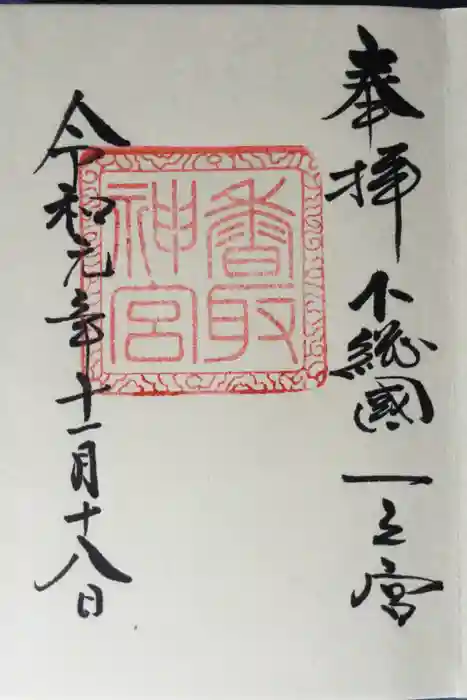 奉拝 下総國一之宮
香取
神宮
令和元年十一月十八日